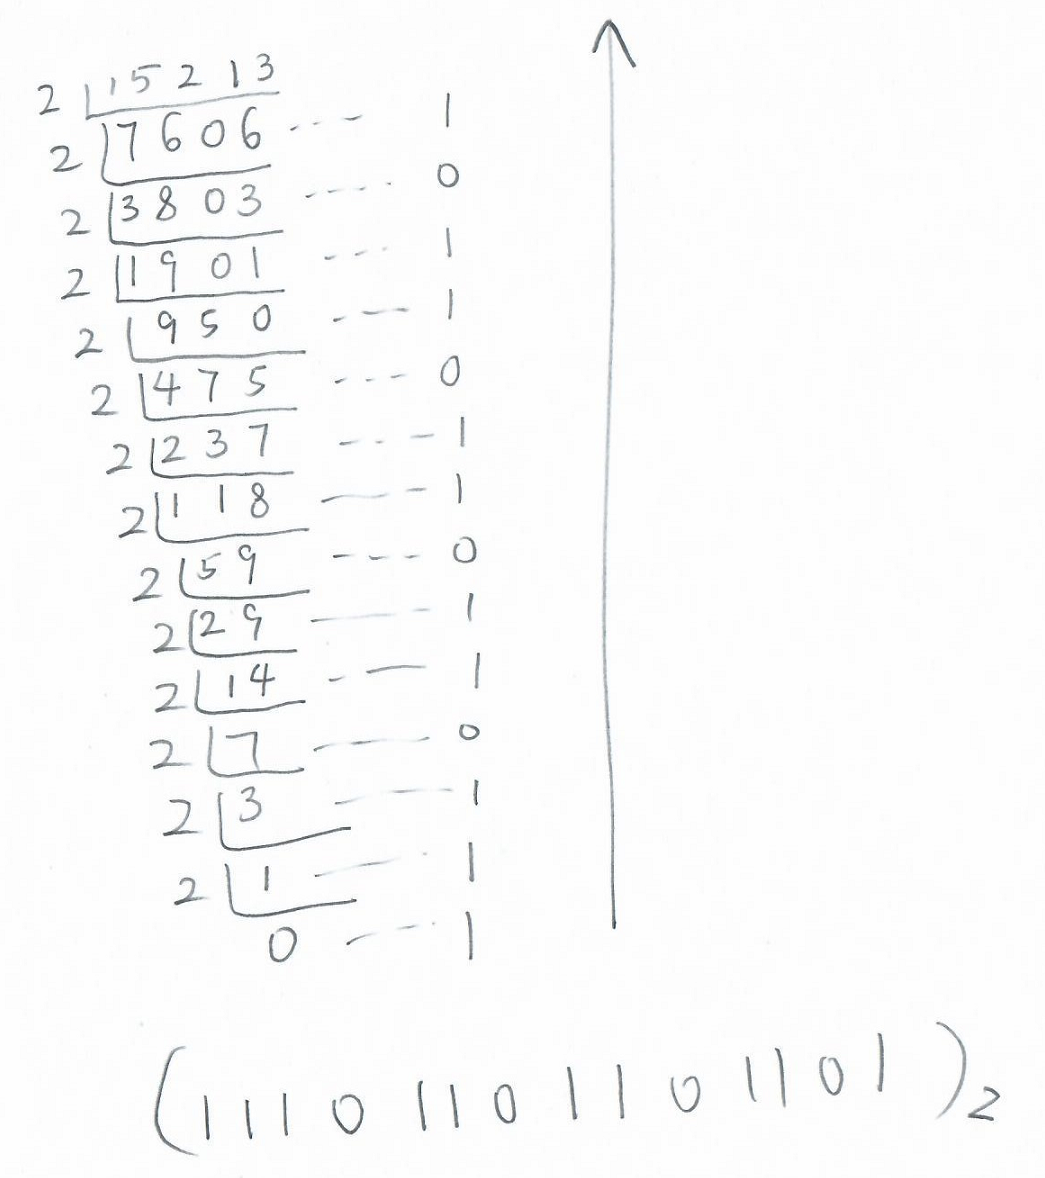 2 15213
2 7606 --- 1
2 3803 ---- 0
2 1901 --- 1
2 950 --- 1
2 475 --- 0
2 237 --- 1
2 118 --- 1
2 59 --- 0
2 29 --- 1
2 14 --- 1
2 7 --- 0
2 3 --- 1
2 1 --- 1
0 --- 1
(11101101101101)2